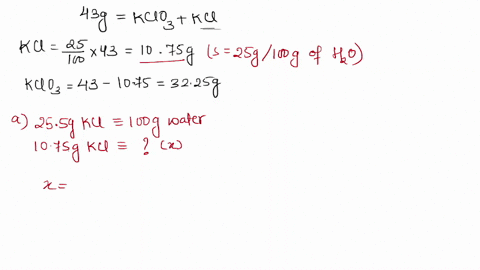 43g = KClO₃ + KCl
KCl = 25/100 × 43 = 10.75g (s = 25g/100g of H₂O)
KClO₃ = 43 - 10.75 = 32.25g
a) 25.5g KCl ≡ 100g water
10.75g KCl ≡ ? (x)
x =